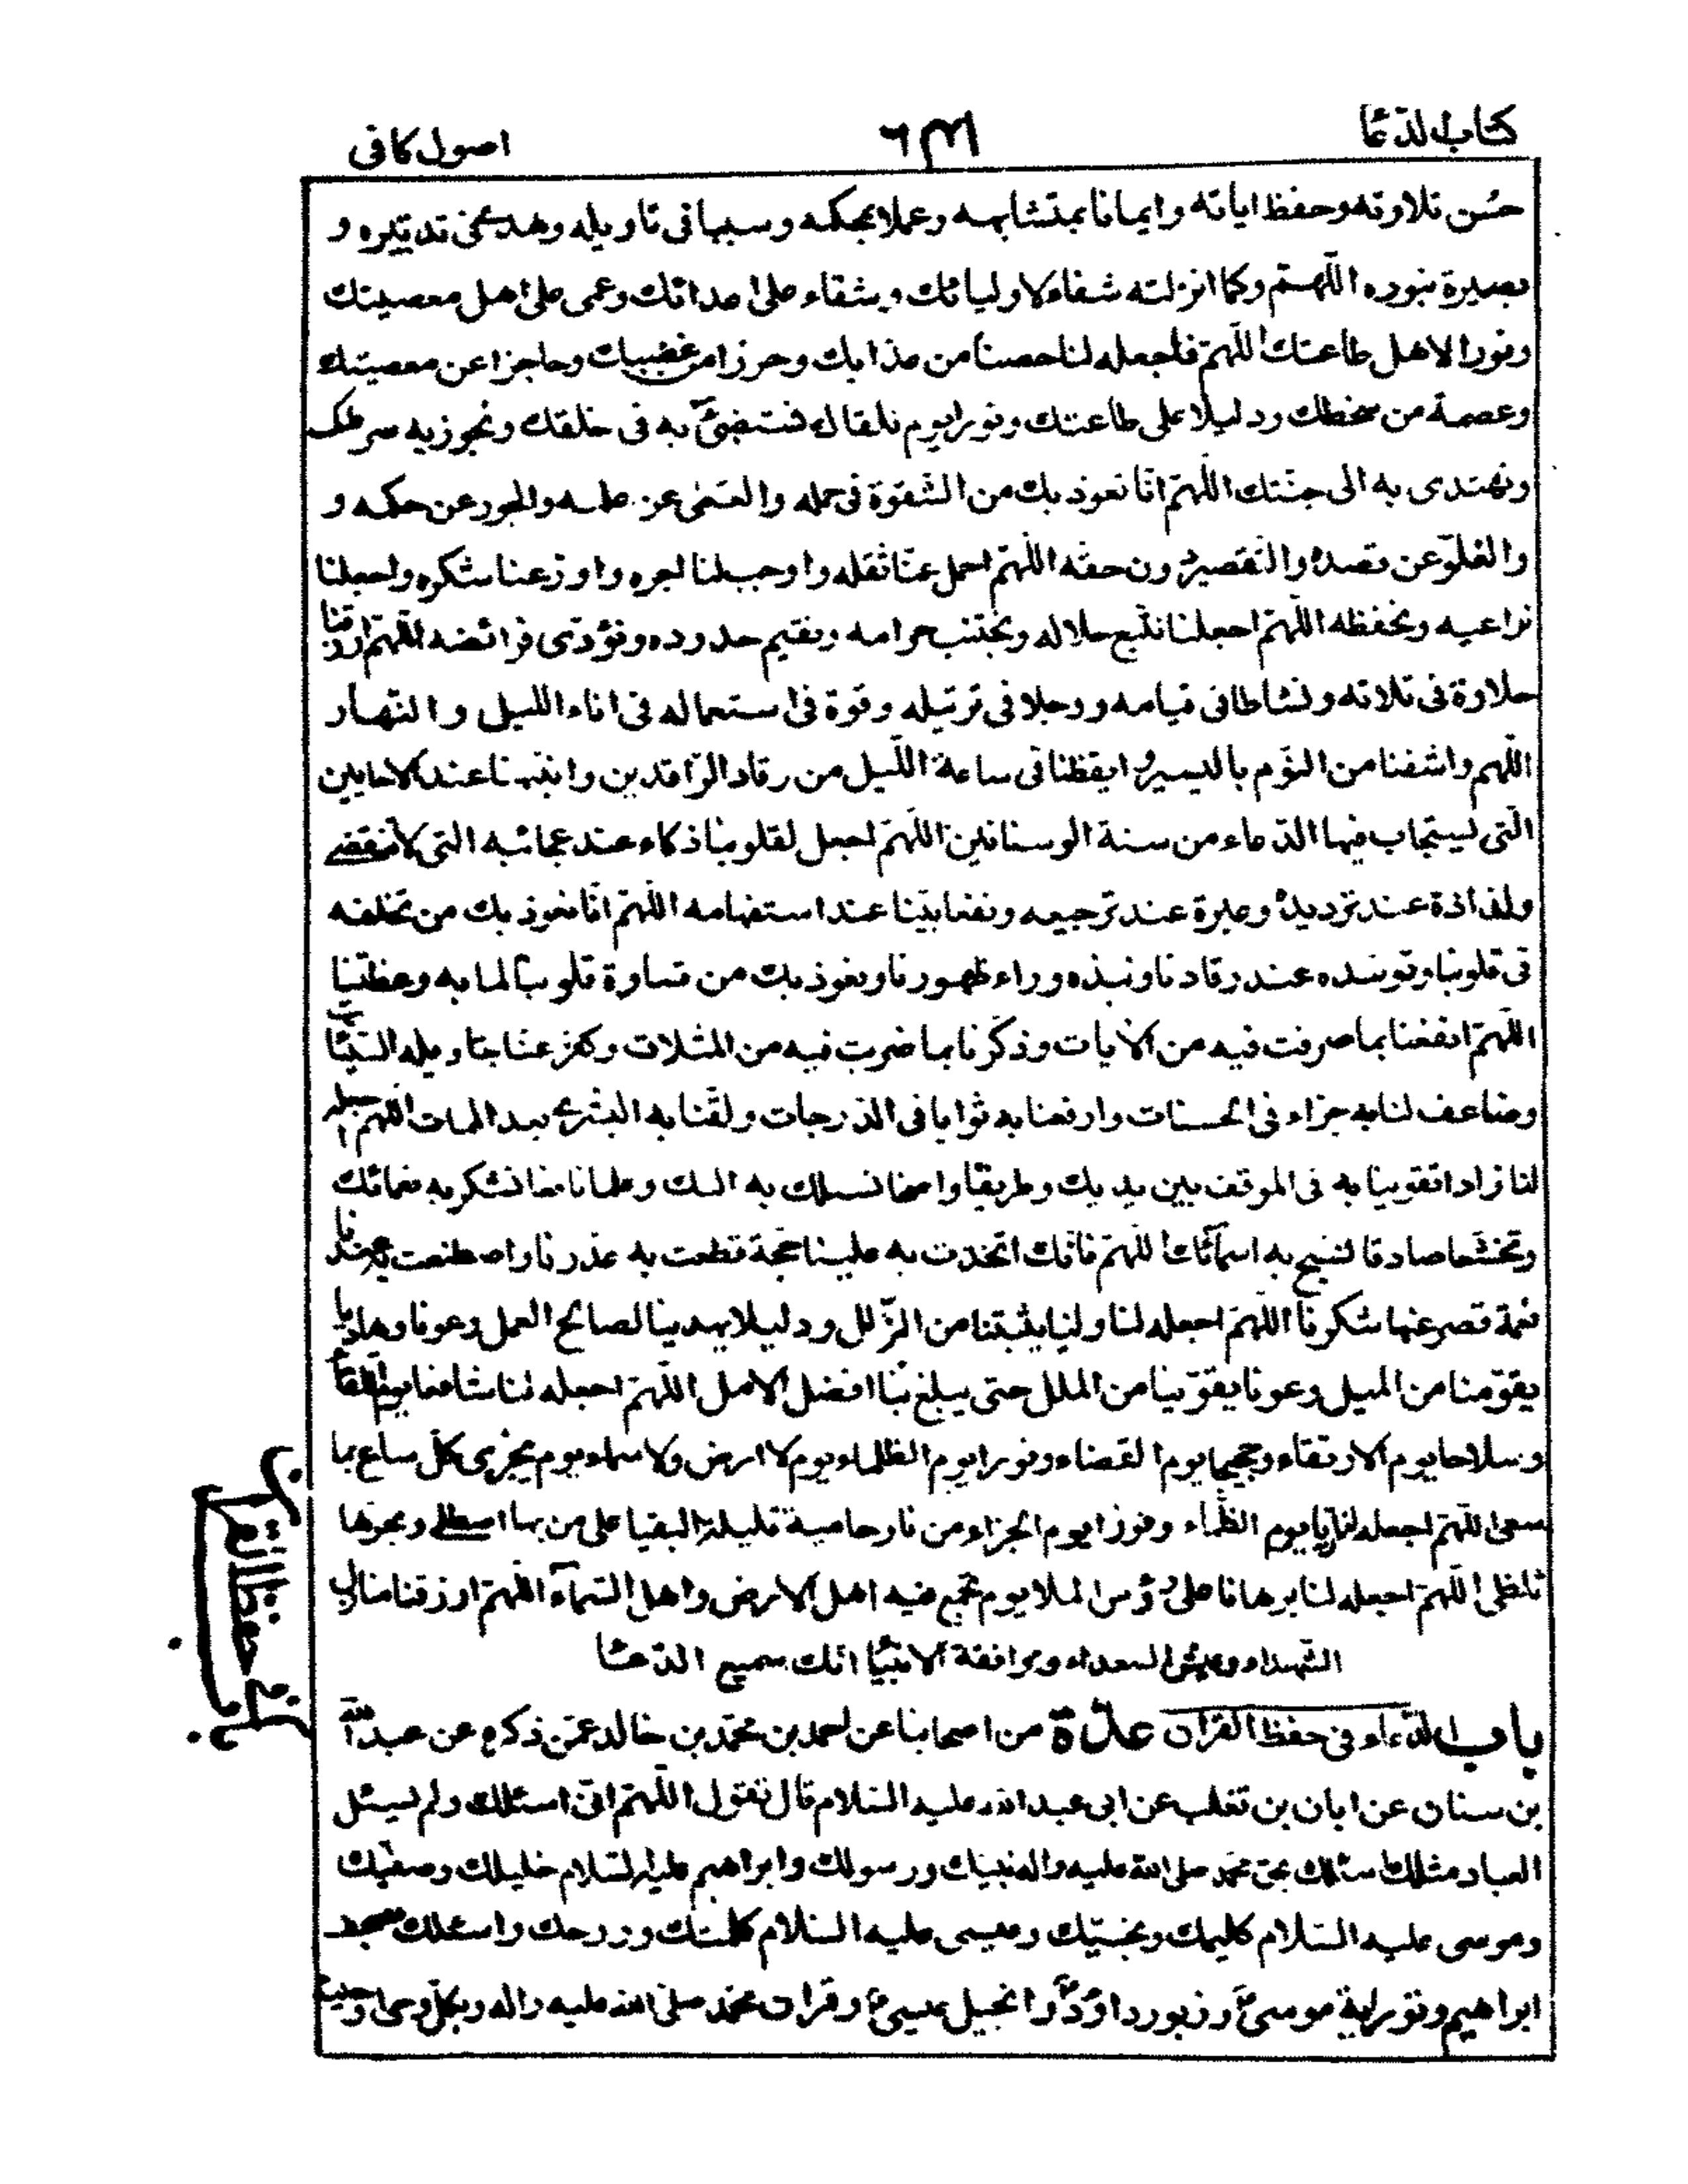 كتاب الدعا
٦٣٦
اصول كافى
حسن تلاوته وحفظ اياته وايمانا بمتشابهه وعملا بمحكمه وسببا فى تاويله وهدى فى تدبيره و
بصيرة بنوره اللّهمّ وكما انزلته شفاء لاوليائك وشقاء على اعدائك وعمى على اهل معصيتك
ونورا لاهل طاعتك اللّهمّ فاجعله لنا حصنا من عذابك وحرزا من غضبك وحاجزا عن معصيتك
وعصمة من سخطك ودليلا على طاعتك ونورا يوم نلقاك فنستضئ به فى خلقك ونجوز به صراطك
ونهتدى به الى جنتك اللّهمّ انّا نعوذ بك من الشّقوة فى حمله والعمى عن علمه والجور عن حكمه و
والغلوّ عن قصده والتّقصير دون حقّه اللّهمّ احمل عنّا ثقله واوجب لنا اجره واوزعنا شكره واجعلنا
نراعيه ونحفظه اللّهمّ اجعلنا نتّبع حلاله ونجتنب حرامه ونقيم حدوده ونؤدّى فرائضه اللّهمّ ارزقنا
حلاوة فى تلاته ونشاطا فى قيامه ووجلا فى ترتيله وقوّة فى استعماله فى اناء الليل والنّهار
اللّهم واشفنا من النّوم باليسير وايقظنا فى ساعة اللّيل من رقاد الرّاقدين وانبهنا عند الاحايين
الّتى يستجاب فيها الدّعاء من سنة الوسنانين اللّهمّ اجعل لقلوبنا ذكاء عند عجائبه التى لا تنقضى
ولذاذة عند ترديده وعبرة عند ترجيعه ونفعا بيّنا عند استفهامه اللّهمّ انّا نعوذ بك من تخلفه
فى قلوبنا وتوسده عند رقادنا ونبذه وراء ظهورنا ونعوذ بك من قساوة قلوبنا لما به وعظتنا
اللّهمّ انفعنا بما صرفت فيه من الايات وذكّرنا بما ضربت فيه من المثلات وكفر عنّا بتاويله السّيّئات
وضاعف لنا به جزاء فى الحسنات وارفعنا به ثوابا فى الدّرجات ولقّنا به البشرى بعد الممات اللّهمّ اجعله
لنا زادا تقوينا به فى الموقف بين يديك وطريقا واضحا نسلك به اليك وعلما نافعا نشكر به نعمائك
وتخشعا صادقا نسبح به اسمائك اللّهمّ فانّك اتخذت به علينا حجة قطعت به عذرنا واصطنعت به عندنا
نعمة قصر عنها شكرنا اللّهمّ اجعله لنا وليا يثبتنا من الزّلل ودليلا يهدينا لصالح العمل وعونا وهاديا
يقوّمنا من الميل وعونا يقوّينا من الملل حتى يبلغ بنا افضل الامل اللّهمّ اجعله لنا شافعا يوم اللّقا
وسلاحا يوم الارتقاء وحجيجا يوم القضاء ونورا يوم الظلماء يوم لا ارض ولا سماء يوم يجزى كلّ ساع بما
سعى اللّهمّ اجعله لنا ريا يوم الظّماء وفوزا يوم الجزاء من نار حامية قليلة البقيا على من بها اصطلى وبحرها
تلظى اللّهمّ اجعله لنا برهانا على رؤس الملا يوم تجمع فيه اهل الارض واهل السّماء اللّهمّ ارزقنا منازل
الشّهداء وعيش السعداء ومرافقة الانبيا انّك سميع الدّعا
باب الدّعاء فى حفظ القران عدّة من اصحابنا عن احمد بن محمّد بن خالد عمّن ذكره عن عبد اللّه
بن سنان عن ابان بن تغلب عن ابى عبد اللّه عليه السّلام قال تقول اللّهمّ انّى اسئلك ولم يسئل
العباد مثلك اسئلك بحق محمّد صلى اللّه عليه واله نبيك ورسولك وابراهيم عليه السّلام خليلك وصفيّك
وموسى عليه السّلام كليمك ونجيّك وعيسى عليه السّلام كلمتك وروحك واسئلك بصحف
ابراهيم وتورية موسى ع وزبور داود ع وانجيل عيسى ع وقران محمّد صلى اللّه عليه واله وبكل وحى